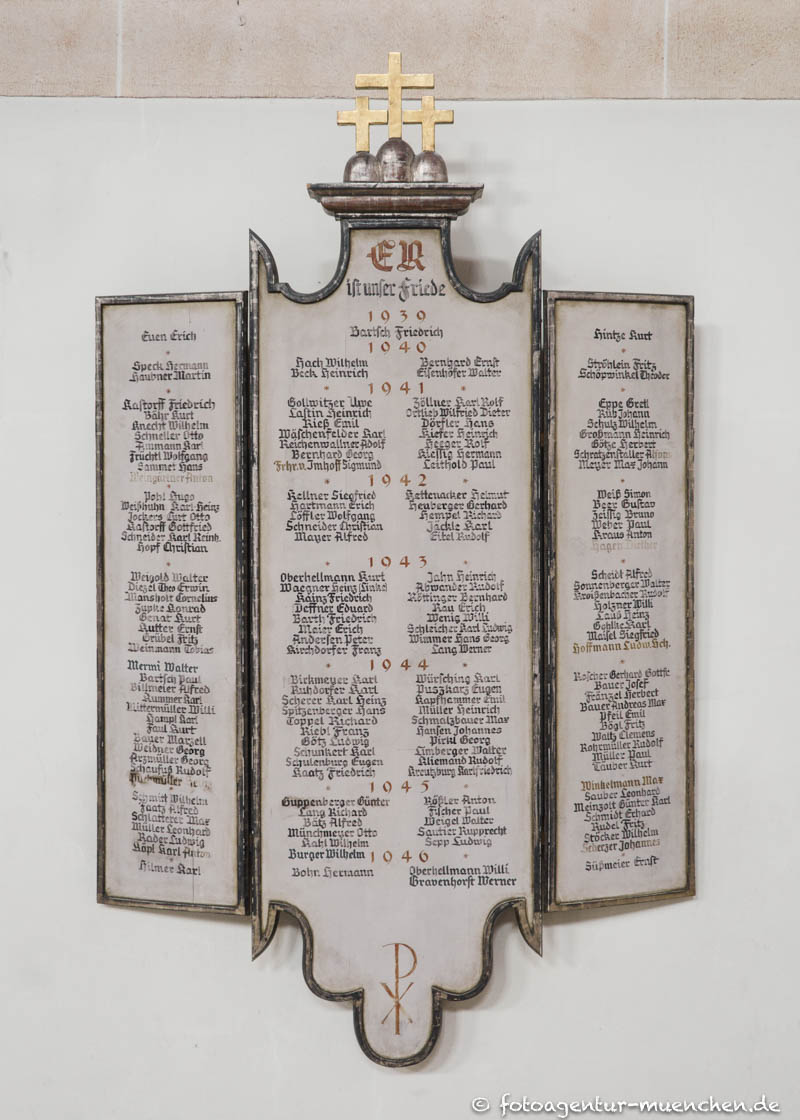 ER
ist unser Friede
Euen Erich
*
Speck Hermann
Haubner Martin
*
Kastorff Friedrich
Bähr Kurt
Knecht Wilhelm
Schneller Otto
Ammann Karl
Früchtl Wolfgang
Sammet Hans
Weingärtner Anton
*
Pohl Hugo
Weißhuhn Karl-Heinz
Jockers Curt Otto
Kastorff Gottfried
Schneider Karl Reinh.
Hopf Christian
*
Weigold Walter
Diezel Theo Erwin
Mansholt Cornelius
Zupke Konrad
Genat Kurt
Kutter Ernst
Grübel Fritz
Weinmann Tobias
*
Mermi Walter
Bartsch Paul
Billmeier Alfred
Kummer Karl
Rittermüller Willi
Hampl Karl
Faul Kurt
Bauer Marzell
Weidner Georg
Arzmüller Georg
Schaufuß Rudolf
*
Schmitt Wilhelm
Faatz Alfred
Schlatterer Max
Müller Leonhard
Rader Ludwig
Köpl Karl Anton
*
Hilmer Karl
1939
Bartsch Friedrich
1940
Hach Wilhelm Bernhard Ernst
Beck Heinrich Eisenhöfer Walter
* 1941 *
Gollwitzer Uwe Zöllner Karl Rolf
Lastin Heinrich Ortlieb Wilfried Dieter
Rieß Emil Dörfler Hans
Wäschenfelder Karl Kiefer Heinrich
Reichenwallner Adolf Heeger Rolf
Bernhard Georg Klessig Hermann
Frhr.v. Imhoff Sigmund Leithold Paul
* 1942 *
Kellner Siegfried Kettenacker Helmut
Hartmann Erich Heuberger Gerhard
Löffler Wolfgang Hempel Richard
Schneider Christian Jäckle Karl
Mayer Alfred Eitel Rudolf
* 1943 *
Oberhellmann Kurt Jahn Heinrich
Waegner Heinz Hinkel Abwander Rudolf
Kainz Friedrich Röttinger Bernhard
Deffner Eduard Rau Erich
Barth Friedrich Wenig Willi
Maier Erich Schleicher Karl Ludwig
Andersen Peter Wimmer Hans Georg
Kirchdorfer Franz Lang Werner
* 1944 *
Birkmeyer Karl Würsching Karl
Ruhdorfer Karl Puszkarz Eugen
Scherer Karl Heinz Kapfhammer Emil
Spitzenberger Hans Müller Heinrich
Toppel Richard Schmalzbauer Max
Riebl Franz Hansen Johannes
Götz Ludwig Pirkl Georg
Schunkert Karl Limberger Walter
Schulenburg Eugen Aliemand Rudolf
Kaatz Friedrich Kreutzburg Karl Friedrich
* 1945 *
Guppenberger Günter Rößler Anton
Lang Richard Fischer Paul
Bätz Alfred Weigel Walter
Münchmeyer Otto Sautier Rupprecht
Kahl Wilhelm Sepp Ludwig
Burger Wilhelm 1946 *
Bohn Hermann Oberhellmann Willi
Gravenhorst Werner
Hintze Kurt
*
Ströhlein Fritz
Schöpwinkel Theodor
*
Eppe Gretl
Rüb Johann
Schulz Wilhelm
Großmann Heinrich
Götze Herbert
Schratzenstaller
Meyer Max Johann
*
Weiß Simon
Beer Gustav
Zeissig Bruno
Weber Paul
Kraus Anton
Hagen
*
Scheidl Alfred
Sonnenberger Walter
Kroißenbacher Rudolf
Holzner Willi
Laus Heinz
Gehlke Karl
Maisel Siegfried
Hoffmann Ludw. Sch.
*
Roscher Gerhard Gottfr.
Bauer Josef
Fränzel Herbert
Bauer Andreas Max
Pfeil Emil
Bögl Fritz
Waltz Clemens
Rohrmüller Rudolf
Müller Paul
Tauber Kurt
*
Winkelmann Max
Sauber Leonhard
Meinzolt Günter Karl
Schmidt Erhard
Rudel Fritz
Stöcker Wilhelm
Scherzer Johannes
*
Süßmeier Ernst
© fotoagentur-muenchen.de